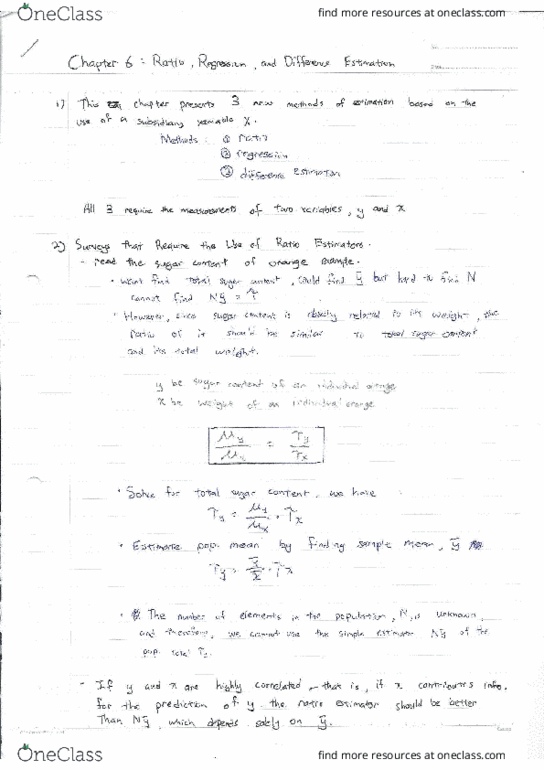 OneClass
find more resources at oneclass.com
Chapter 6 : Ratio, Regression, and Difference Estimation
1) This chapter presents 3 new methods of estimation based on the
use of a subsidiary variable X.
Methods : ① ratio
② regression
③ difference estimation
All 3 require the measurements of two variables, y and x
2) Surveys that Require the Use of Ratio Estimators.
- read the sugar content of orange example.
• want find total sugar content, could find ȳ but hard to find N
cannot find Nȳ = T̂
• However, since sugar content is related to its weight, the
ratio of it should be similar to total sugar content
and its total weight.
y be sugar content of an individual orange
x be weight of an individual orange
μy / μx = τy / τx
• Solve for total sugar content, we have
τy = μy / μx · τx
• Estimate pop. mean by finding sample mean, ȳ
τ̂y = ȳ / x̄ · τx
• The number of elements in the population, N, is unknown,
and therefore, we cannot use the simple estimator Nȳ of the
pop. total τy.
- If y and x are highly correlated, that is, if x contributes info.
for the prediction of y the ratio estimator should be better
than Nȳ, which depends solely on ȳ.
OneClass
find more resources at oneclass.com